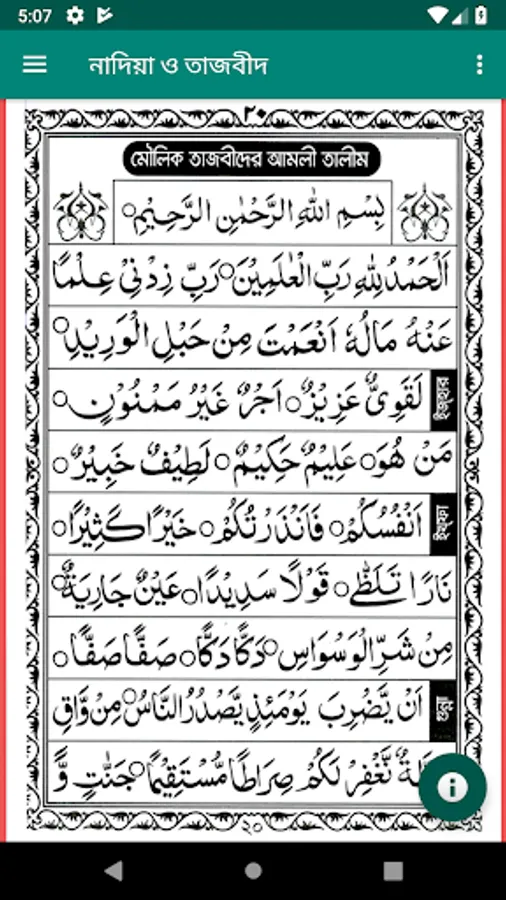 5:07
নাদিয়া ও তাজবীদ
٢٠
মৌলিক তাজবীদের আমলী তালীম
بِسْمِ اللهِ الرَّحْمٰنِ الرَّحِيْمِ○
اَلْحَمْدُ لِلّٰهِ رَبِّ الْعٰلَمِيْنَ○ رَبِّ زِدْنِيْ عِلْمًا
عَنْهُ مَالُهٗ اَنْعَمْتَ مِنْ حَبْلِ الْوَرِيْدِ○
ইজহার
لَقَوِيٌّ عَزِيْزٌ○ اَجْرٌ غَيْرُ مَمْنُوْنٍ○
مَنْ هُوَ○ عَلِيْمٌ حَكِيْمٌ○ لَطِيْفٌ خَبِيْرٌ○
ইখফা
اَنْفُسُكُمْ○ فَاَنْذَرْتُكُمْ○ خَيْرًا كَثِيْرًا○
نَارًا تَلَظّٰى○ قَوْلًا سَدِيْدًا○ عَيْنٌ جَارِيَةٌ○
مِنْ شَرِّ الْوَسْوَاسِ○ دَكًّا دَكًّا○ صَفًّا صَفًّا○
গুন্না
اَنْ يَّضْرِبَ يَوْمَئِذٍ يَّصْدُرُ النَّاسُ○ مِنْ وَّاقٍ
نَّغْفِرْ لَكُمْ صِرَاطًا مُّسْتَقِيْمًا○ جَنّٰتٍ وَّ
٢٠